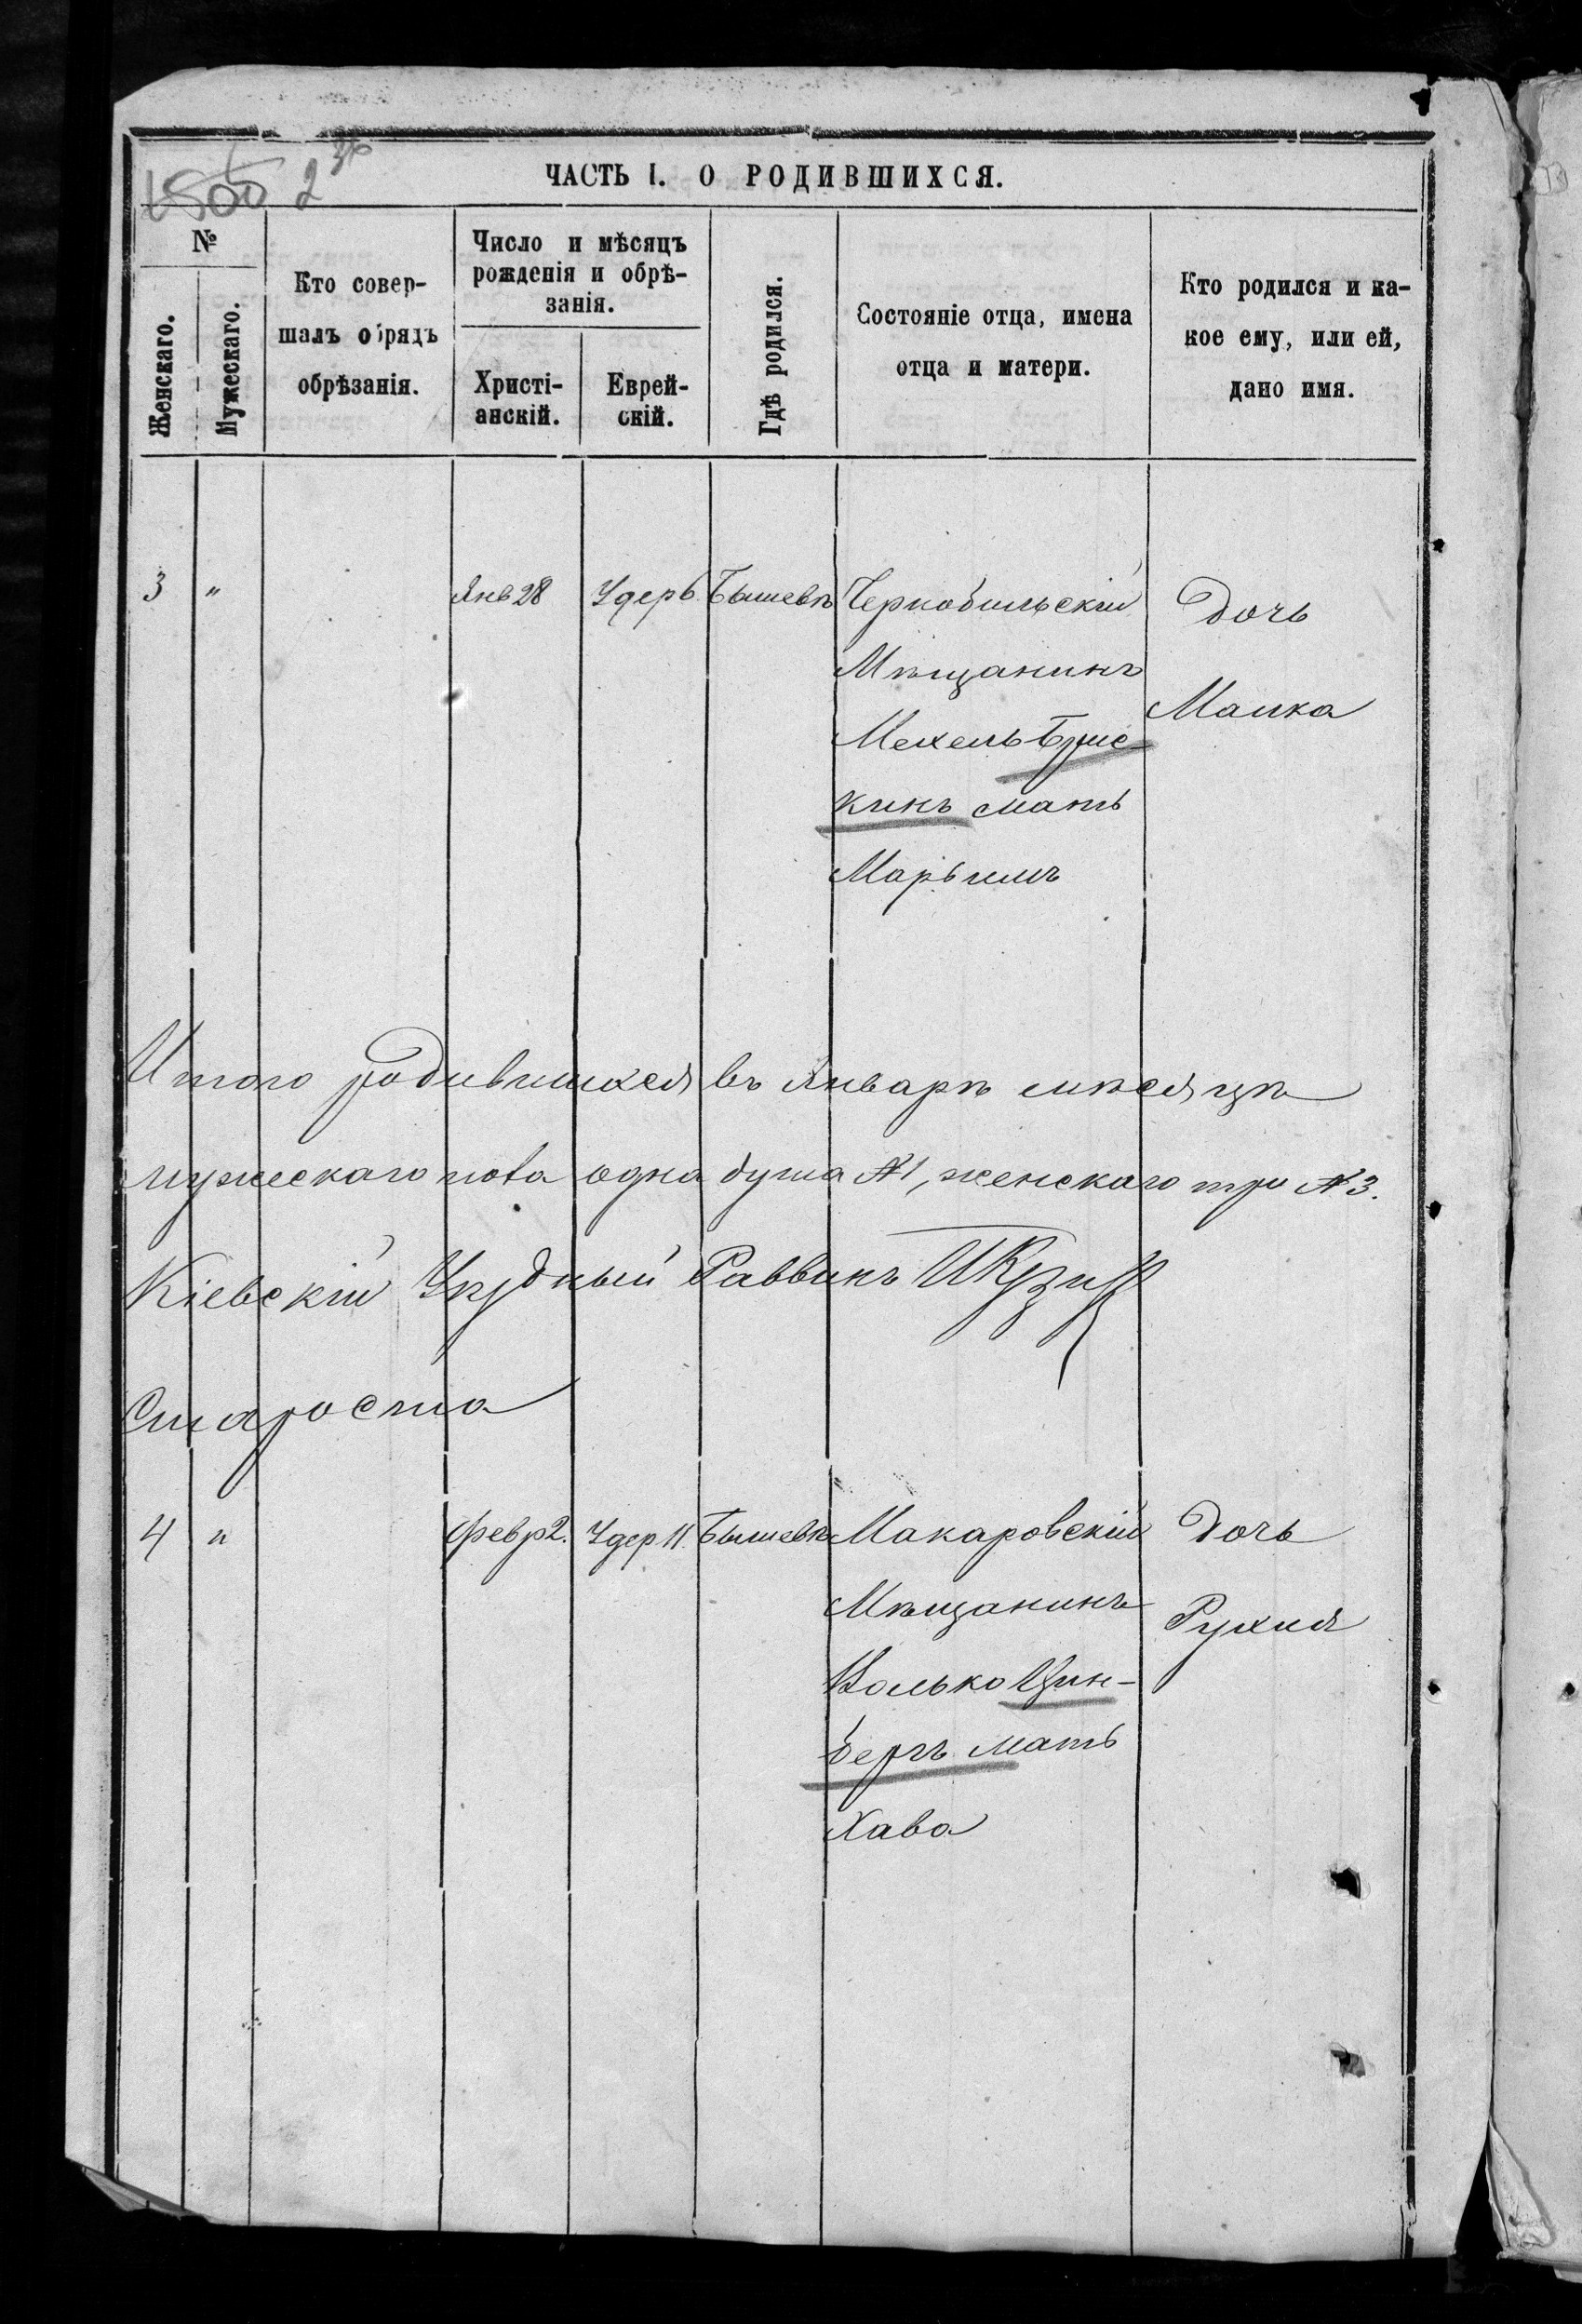 ЧАСТЬ I. О РОДИВШИХСЯ.
№
Женскаго.
Мужескаго.
Кто совер-
шалъ обрядъ
обрѣзанія.
Число и мѣсяцъ
рожденія и обрѣ-
занія.
Христі-
анскій.
Еврей-
скій.
Гдѣ родился.
Состояніе отца, имена
отца и матери.
Кто родился и ка-
кое ему, или ей,
дано имя.
3 " Янв 28 Удер 6 Бышевѣ Чернобильскій Дочь
Мѣщанинъ
Малка
Мехель Брис-
кинъ мать
Марьимъ
Итого родившихся въ Январѣ мѣсяцѣ
мужескаго пола одна душа №1, женскаго три №3.
Кіевскій Уѣздный Раввинъ
Староста
4 " Февр 2. Удер 11 Бышевѣ Макаровскій Дочь
Мѣщанинъ
Рухля
Волько Цин-
бергъ мать
Хава